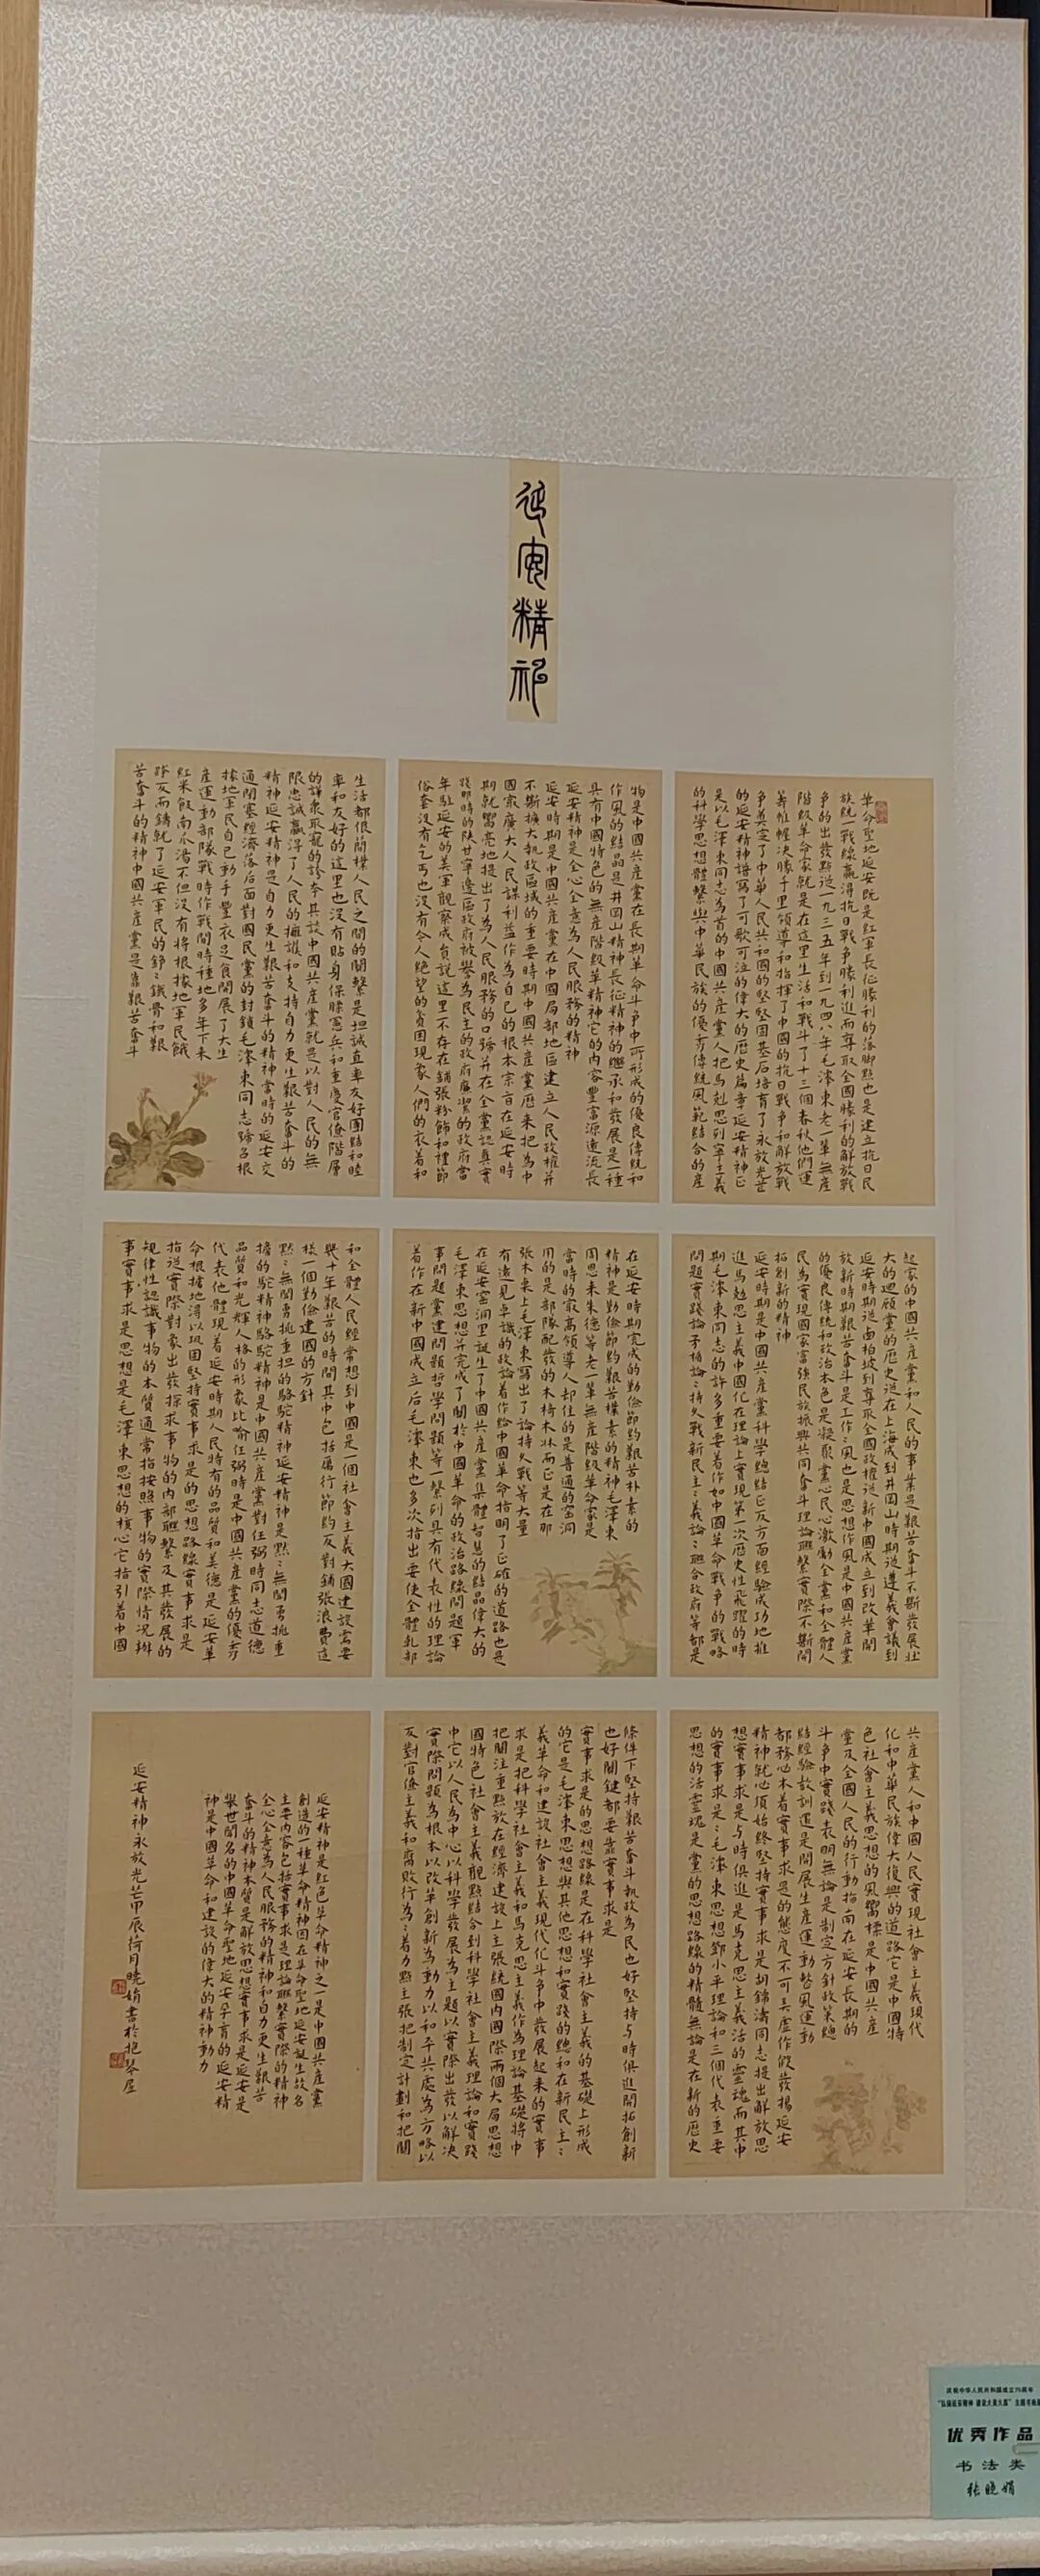 延安精神
革命聖地延安既是紅軍長征勝利的落脚點也是建立抗日民
族統一戰線贏得抗日戰争勝利進而奪取全國勝利的解放戰
争的出發點從一九三五年到一九四八年毛澤東老一軰無産
階級革命家就是在這里生活和戰斗了十三個春秋他們運
籌帷幄决勝千里領導和指揮了中國的抗日戰争和解放戰
争奠定了中華人民共和國的堅堅固基石培育了永放光芒
的延安精神譜寫了可歌可泣的偉大的歷史篇章延安精神正
是以毛澤東同志為首的中國共産黨人把馬剋思列寧主義
的科學思想體繫與中華民族的優秀傳統風範結合的産
物是中國共産黨在長期革命斗争中所形成的優良傳統和
作風的結晶是井岡山精神長征精神的繼承和發展是一種
具有中國特色的無産階級革精神它的内容豐富源遠流長
延安精神是全心全意為人民服務的精神
延安時期是中國共産黨在中國局部地區建立人民政權并
不斷擴大執政區域的重要時期中國共産黨歷来把為中
國最廣大人民謀利益作為自己的根本宗旨在延安時
期就響亮地提出了為人民服務的口號并在全黨認真實
踐那時的陕甘寧邊區政府被譽為民主的政府廉潔的政府當
年駐延安的美軍觀察成員說這里不存在鋪張粉飾和禮節
俗套没有乞丐也没有令人絶望的貧困現象人們的衣着和
生活都很簡樸人民之間的關繫是坦誠直率友好團結和睦
率和友好的這里也没有貼身保膘憲兵和重慶官僚階層
的譁衆取寵的誇夸其談中國共産黨就是以對人民的無
限忠誠贏得了人民的擁護和支持自力更生艱苦奮斗的
精神延安精神是自力更生艱苦奮斗的精神當時的延安交
通閉塞經濟落后面對國民黨的封鎖毛澤東同志號召根
據地軍民自己動手豐衣足食開展了大生
産運動部隊戰時作戰閒時種地多年下来
紅米飯南瓜湯不但没有將根據地軍民餓
跨反而鑄就了延安軍民的錚錚鐵骨和艱
苦奮斗的精神中國共産黨是靠艱苦奮斗
起家的中國共産黨和人民的事業是艱苦奮斗不斷發展壮
大的迴顧黨的歷史從在上海成到井岡山時期從遵義會議到
延安時期從西柏坡到奪取全國政權從新中國成立到改革開
放新時期艱苦奮斗是工作作風也是思想作風是中國共産黨
的優良傳統和政治本色是凝聚黨心民心激勵全黨和全體人
民為實現國家富强民族振興共同奮斗理論聯繫實際不斷開
拓創新的精神
延安時期是中國共産黨科學總結正反方面經驗成功地推
進馬剋思主義中國化在理論上實現第一次歷史性飛躍的時
期毛澤東同志的許多重要着作如中國革命戰争的戰略
問題實踐論矛楯論持久戰新民主主義論聯合政府等都是
在延安時期完成的勤儉節約艱苦朴素的
精神是勤儉節約艱苦樸素的精神毛澤東
周恩来朱德等老一軰無産階級革命家是
當時的最高領導人却住的是普通的窑洞
用的是部隊配發的木椅木牀而正是在那
張木桌上毛澤東寫出了論持久戰等大量
有遠見卓識的政論着作給中國革命指明了正確的道路也是
在延安窑洞里誕生了中國共産黨集體智慧的結晶偉大的
毛澤東思想并完成了關於中國革命的政治路線問題軍
事問題黨建問題哲學問題等一繫列具有代表性的理論
着作在新中國成立后毛澤東也多次指出要使全體乾部
和全體人民經常想到中國是一個社會主義大國建設需要
幾十年艱苦的時間其中包括厲行節約反對鋪張浪費這
樣一個勤儉建國的方針
默默無聞勇挑重担的駱駝精神延安精神是默默無聞勇挑重
擔的駝精神駱駝精神是中國共産黨對任弼時同志道德
品質和光輝人格的形象比喻任弼時是中國共産黨的優秀
代表他體現着延安時期人民特有的品質和美德是延安革
命根據地得以巩固堅持實事求是的思想路線實事求是
指從實際對象出發探求事物的内部聯繫及其發展的
規律性認識事物的本質通常指按照事物的實際情况辦
事實事求是思想是毛澤東思想的核心它指引着中國
共産黨人和中國人民實現社會主義現代
化和中華民族偉大復興的道路它是中國特
色社會主義思想的風嚮標是中國共産
黨及全國人民的行動指南在延安長期的
斗争中實踐表明無論是制定方針政策總
結經驗教訓還是開展生産運動整風運動
都務必本着實事求是的態度不可弄虛作假發揚延安
精神就必須始終堅持實事求是胡錦濤同志提出解放思
想實事求是與時俱進是馬克思主義活的靈魂而其中
的實事求是毛澤東思想鄧小平理論和三個代表重要
思想的活靈魂是黨的思想路線的精髓無論是在新的歷史
條件下堅持艱苦奮斗執政為民也好堅持与時俱進開拓創新
也好關鍵都要靠實事求是
實事求是的思想路線是在科學社會主義的基礎上形成
的它是毛澤東思想與其他思想和實踐的總和在新民主主
義革命和建設社會主義現代化斗争中發展起来的實事
求是把科學社會主義和馬克思主義作為理論基礎將中
把關注重點放在經濟建設上主張統國内國際兩個大局思想
國特色社會主義觀點結合到科學社會主義理論和實踐
中它以人民為中心以科學發展為主題以實際出發以解决
實際問題為根本以改革創新為動力以和平共處為方略以
反對官僚主義和腐敗行為着力點主張把制定計劃和把關
延安精神是紅色革命精神之一是中國共産黨
創造的一種革命精神因在革命聖地延安誕生故名
主要内容包括實事求是理論聯繫實際的精神
全心全意為人民服務的精神和自力更生艱苦
奮斗的精神本質是解放思想實事求是延安是
舉世聞名的中國革命聖地延安孕育的延安精
神是中國革命和建設的偉大的精神動力
延安精神永放光芒甲辰荷月曉娟書於抱琴屋
庆祝中华人民共和国成立75周年
优秀作品
书法类
张晓娟